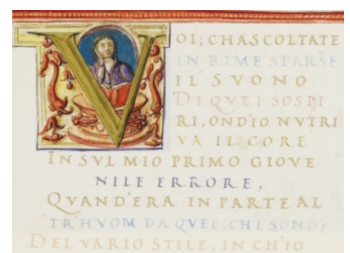 VOI; CHASCOLTATE
IN RIME SPARSE
IL SVONO
DI QVEI SOSPI
RI, ONDIO NVTRI
VA IL CORE
IN SVL MIO PRIMO GIOVE
NILE ERRORE,
QVAND'ERA IN PARTE AL
TR'HVOM DA QVEL CHI SONO;
DEL VARIO STILE, IN CH'IO